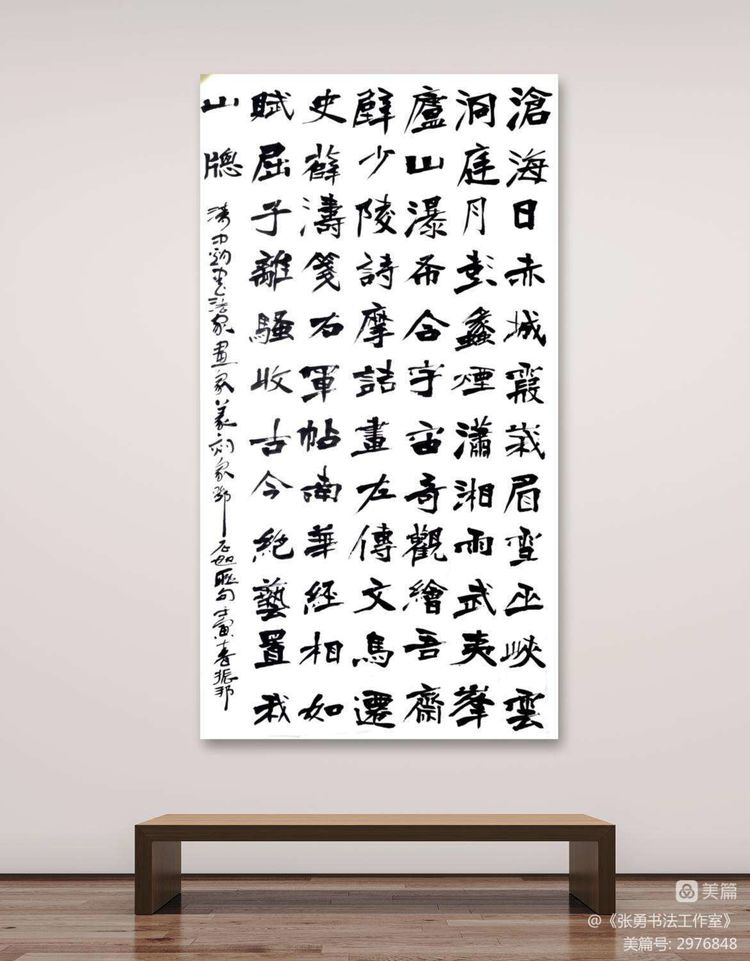 滄海日赤城霞峩眉雪巫峽雲
洞庭月彭蠡煙瀟湘雨武夷峯
廬山瀑布合宇宙奇觀繪吾齋
壁少陵詩摩詰畫左傳文馬遷
史薛濤箋右軍帖南華經相如
賦屈子離騷收古今絕藝置我
山牕
清中期書法家畫家篆刻家鄧石如聯句壬寅春振邦
美篇
@《张勇书法工作室》
美篇号: 2976848